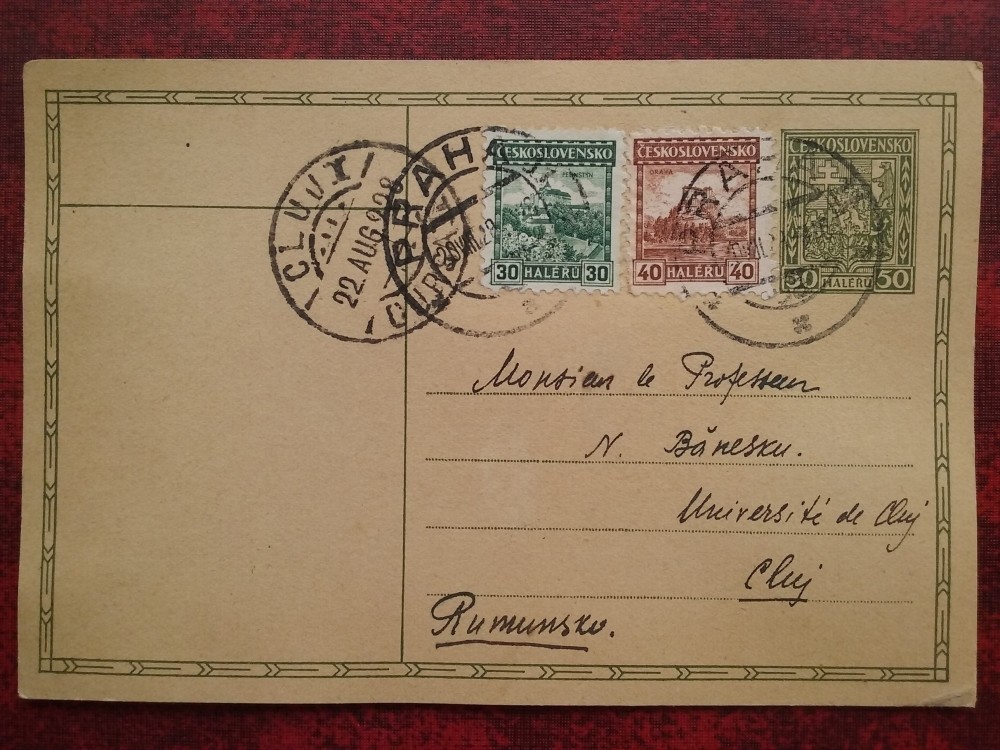 ČESKOSLOVENSKO
PERNŠTYN
30 HALÉŘŮ 30
ČESKOSLOVENSKO
ORAVA
40 HALÉŘŮ 40
50 HALÉŘŮ 50
CLUJ 1
22.AUG.928
PRAHA
Monsieur le Professeur
N. Bănesku.
Université de Cluj
Cluj
Rumunsko.